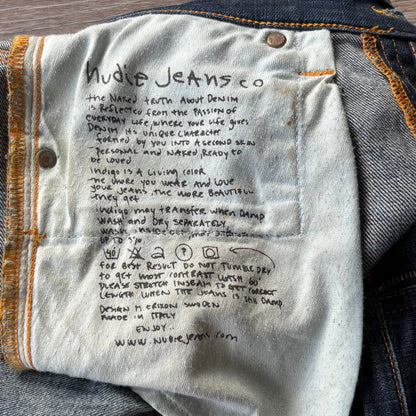 nudie Jeans co
the Naked truth About Denim
is Reflected from the Passion of
everyday life, where your life gives
Denim its unique character
formed by you into a second skin
Personal and Naked, Ready to
be loved
Indigo is a living color
the more you wear and love
your jeans, the more beautiful
they get
indigo may transfer when damp
wash and dry separately
wash inside out,
up to 3%
for best result do not tumble dry
to get most contrast wash 60°
please stretch inseam to get correct
length when the jeans is still damp.
Design M. Erixon Sweden
made in Italy
enjoy..
www.nudiejeans.com